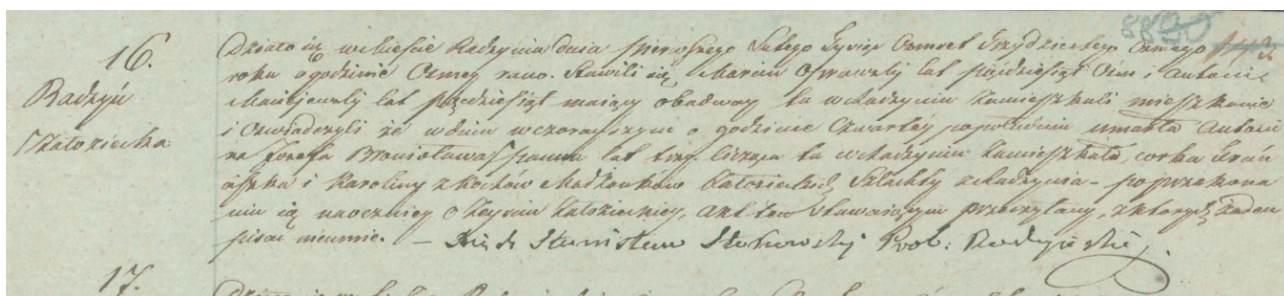 16.
Radzyń
Załoziecka
8890
Działo się w Mieście Radzyniu dnia pierwszego Lutego Tysiąc Osmset Trzydziestego Osmego
roku o godzinie Osmey rano. Stawili się Marcin lat pięćdziesiąt Ośm i Antoni
Maciejewski lat pięćdziesiąt maiący obadway tu w Radzyniu Zamieszkali mieszkanie
i Oświadczyli że w dniu wczorayszym o godzinie Czwartéy popołudniu umarła Antoni
na Józefa Bronisława panna lat trzy licząca tu w Radzyniu Zamieszkała, corka Fran
ciszka i Karoliny z Małżonków Załozieckich Szlachty z Radzynia – po przekona
niu się naocznie o Zeyściu Załozieckiey, Akt ten Stawaiącym przeczytany, z których żaden
pisać nieumie. – Xiądz Stanisław Prob: Radzyński.
17.